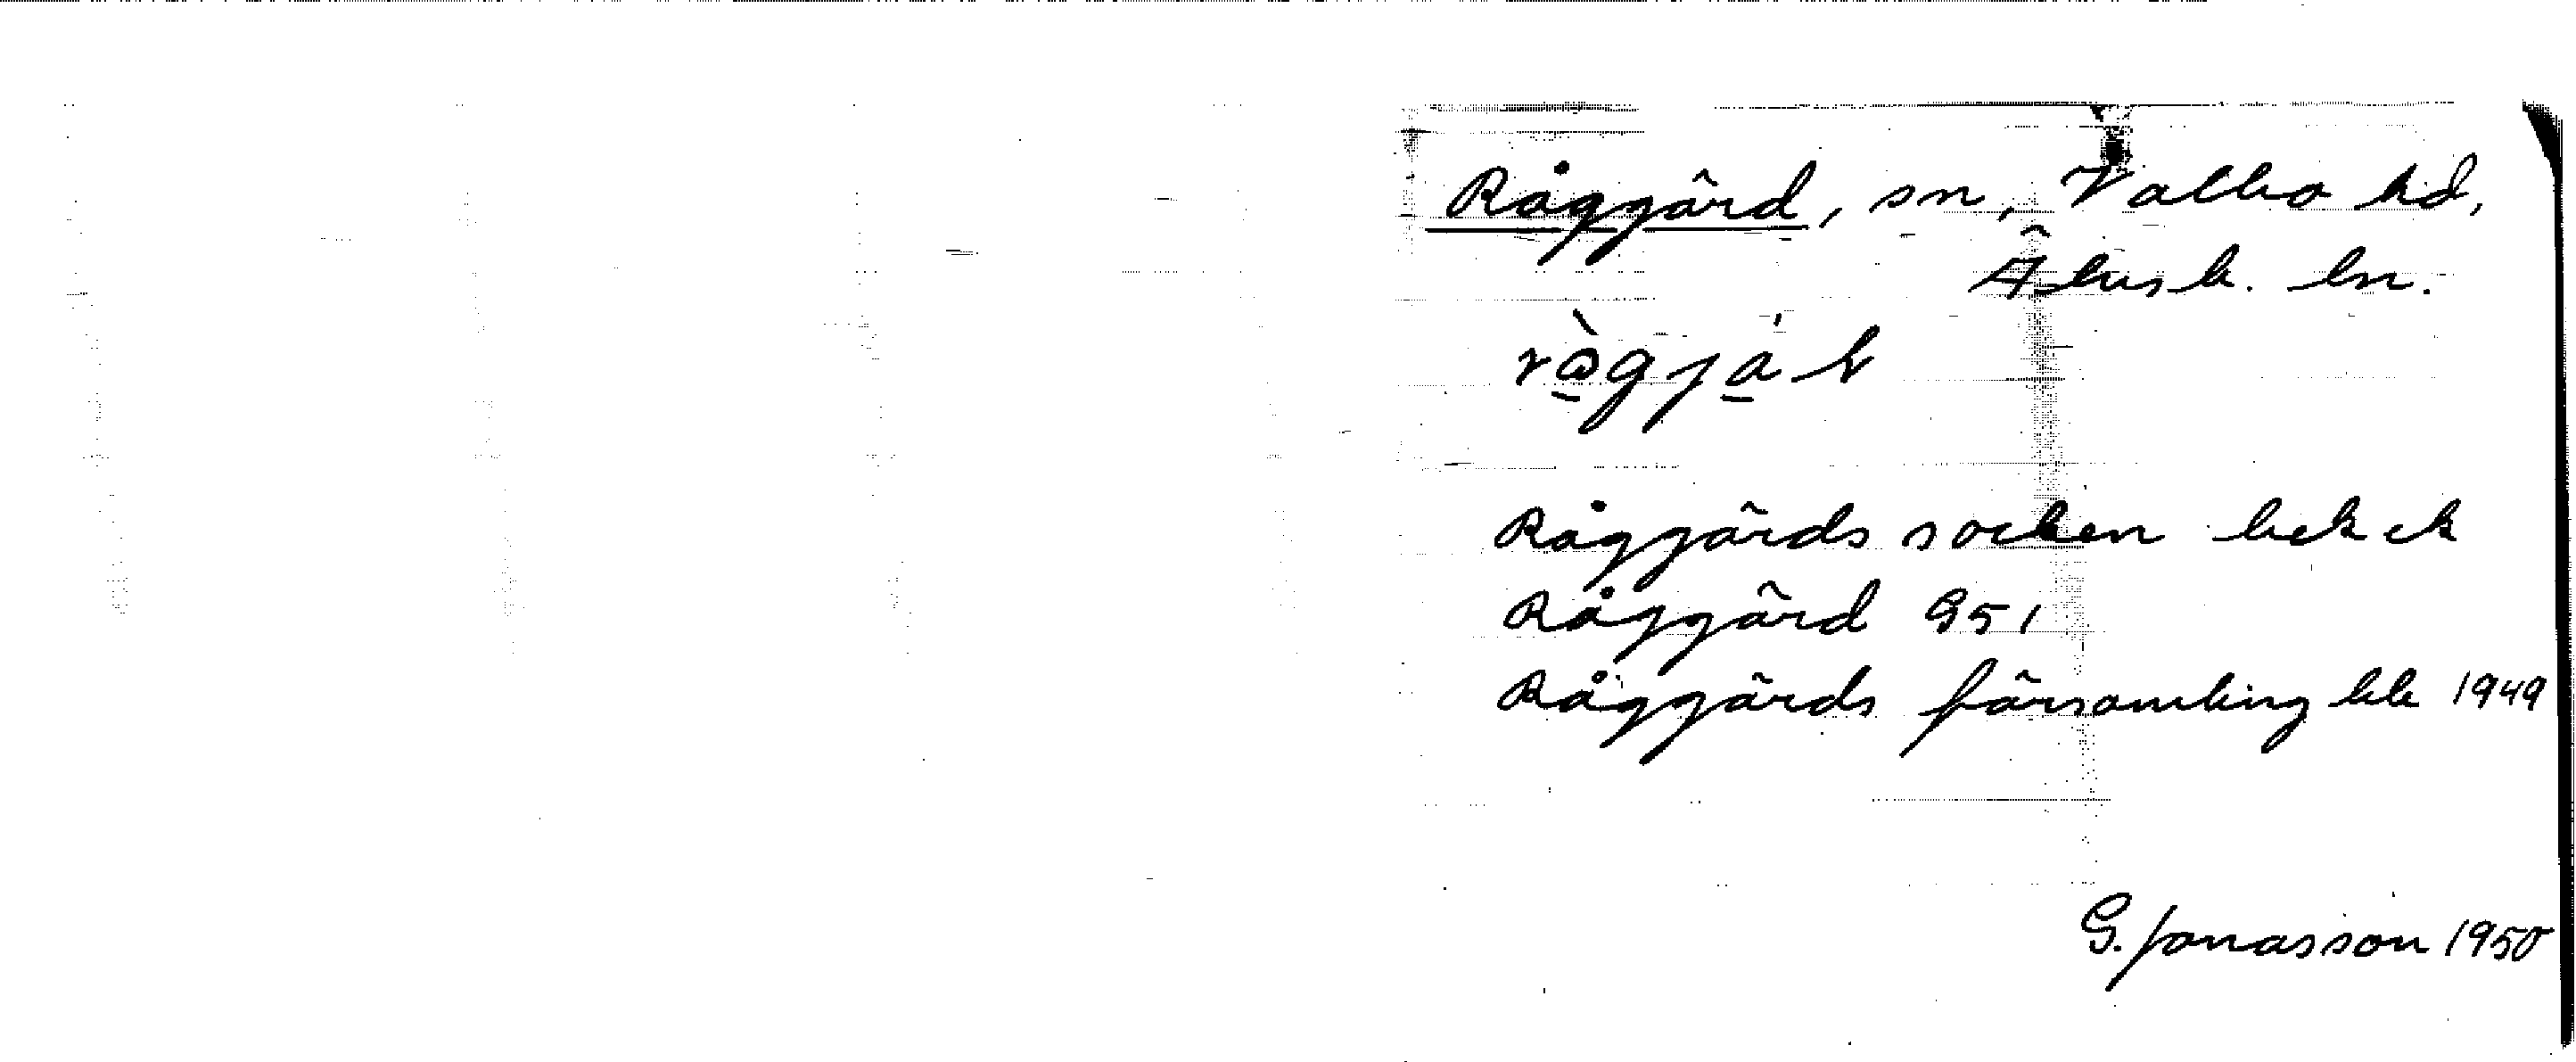 Råggärd, sn, Valbo hd,
Älvsb. ln.
Råggärds socken bekck
Råggärd G51
Råggärds församling kbk 1949
G. Jonasson 1950